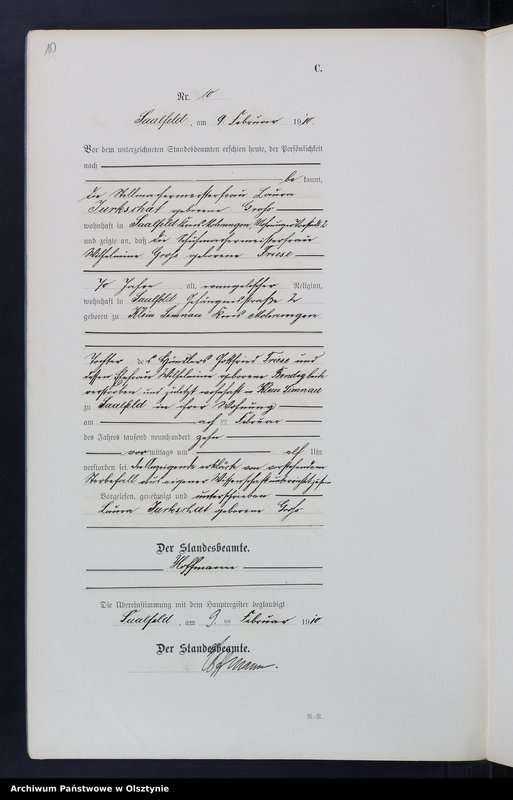 10
C.
Nr. 10
Saalfeld, am 9 Februar 1910.
Vor dem unterzeichneten Standesbeamten erschien heute, der Persönlichkeit
nach
be kannt,
die Stellmachermeisterfrau Laura
Jurkschat geborene Groß
wohnhaft in Saalfeld Kreis Mohrungen, 2
und zeigte an, daß die Schuhmachermeisterfrau
Wilhelmine Groß geborene Friese
70 Jahre alt, evangelischer Religion,
wohnhaft in Saalfeld Gefängnisstraße 2
geboren zu Klein Simnau Kreis Mohrungen
Tochter des Händlers Gottfried Friese und
dessen Ehefrau Wilhelmine geborene
verstorben und zuletzt wohnhaft in Klein Simnau
zu Saalfeld in ihrer Wohnung
am acht ten Februar
des Jahres tausend neunhundert zehn
vor mittags um elf Uhr
verstorben sei. die Anzeigende erklärte von vorstehendem
Sterbefall aus eigener Wissenschaft unterrichtet zu sein
Vorgelesen, genehmigt und unterschrieben
Laura Jurkschat geborene Groß
Der Standesbeamte.
Hoffmann
Die Übereinstimmung mit dem Hauptregister beglaubigt
Saalfeld, am 9. ten Februar 1910
Der Standesbeamte.
Hoffmann.
R.-R.
Archiwum Państwowe w Olsztynie